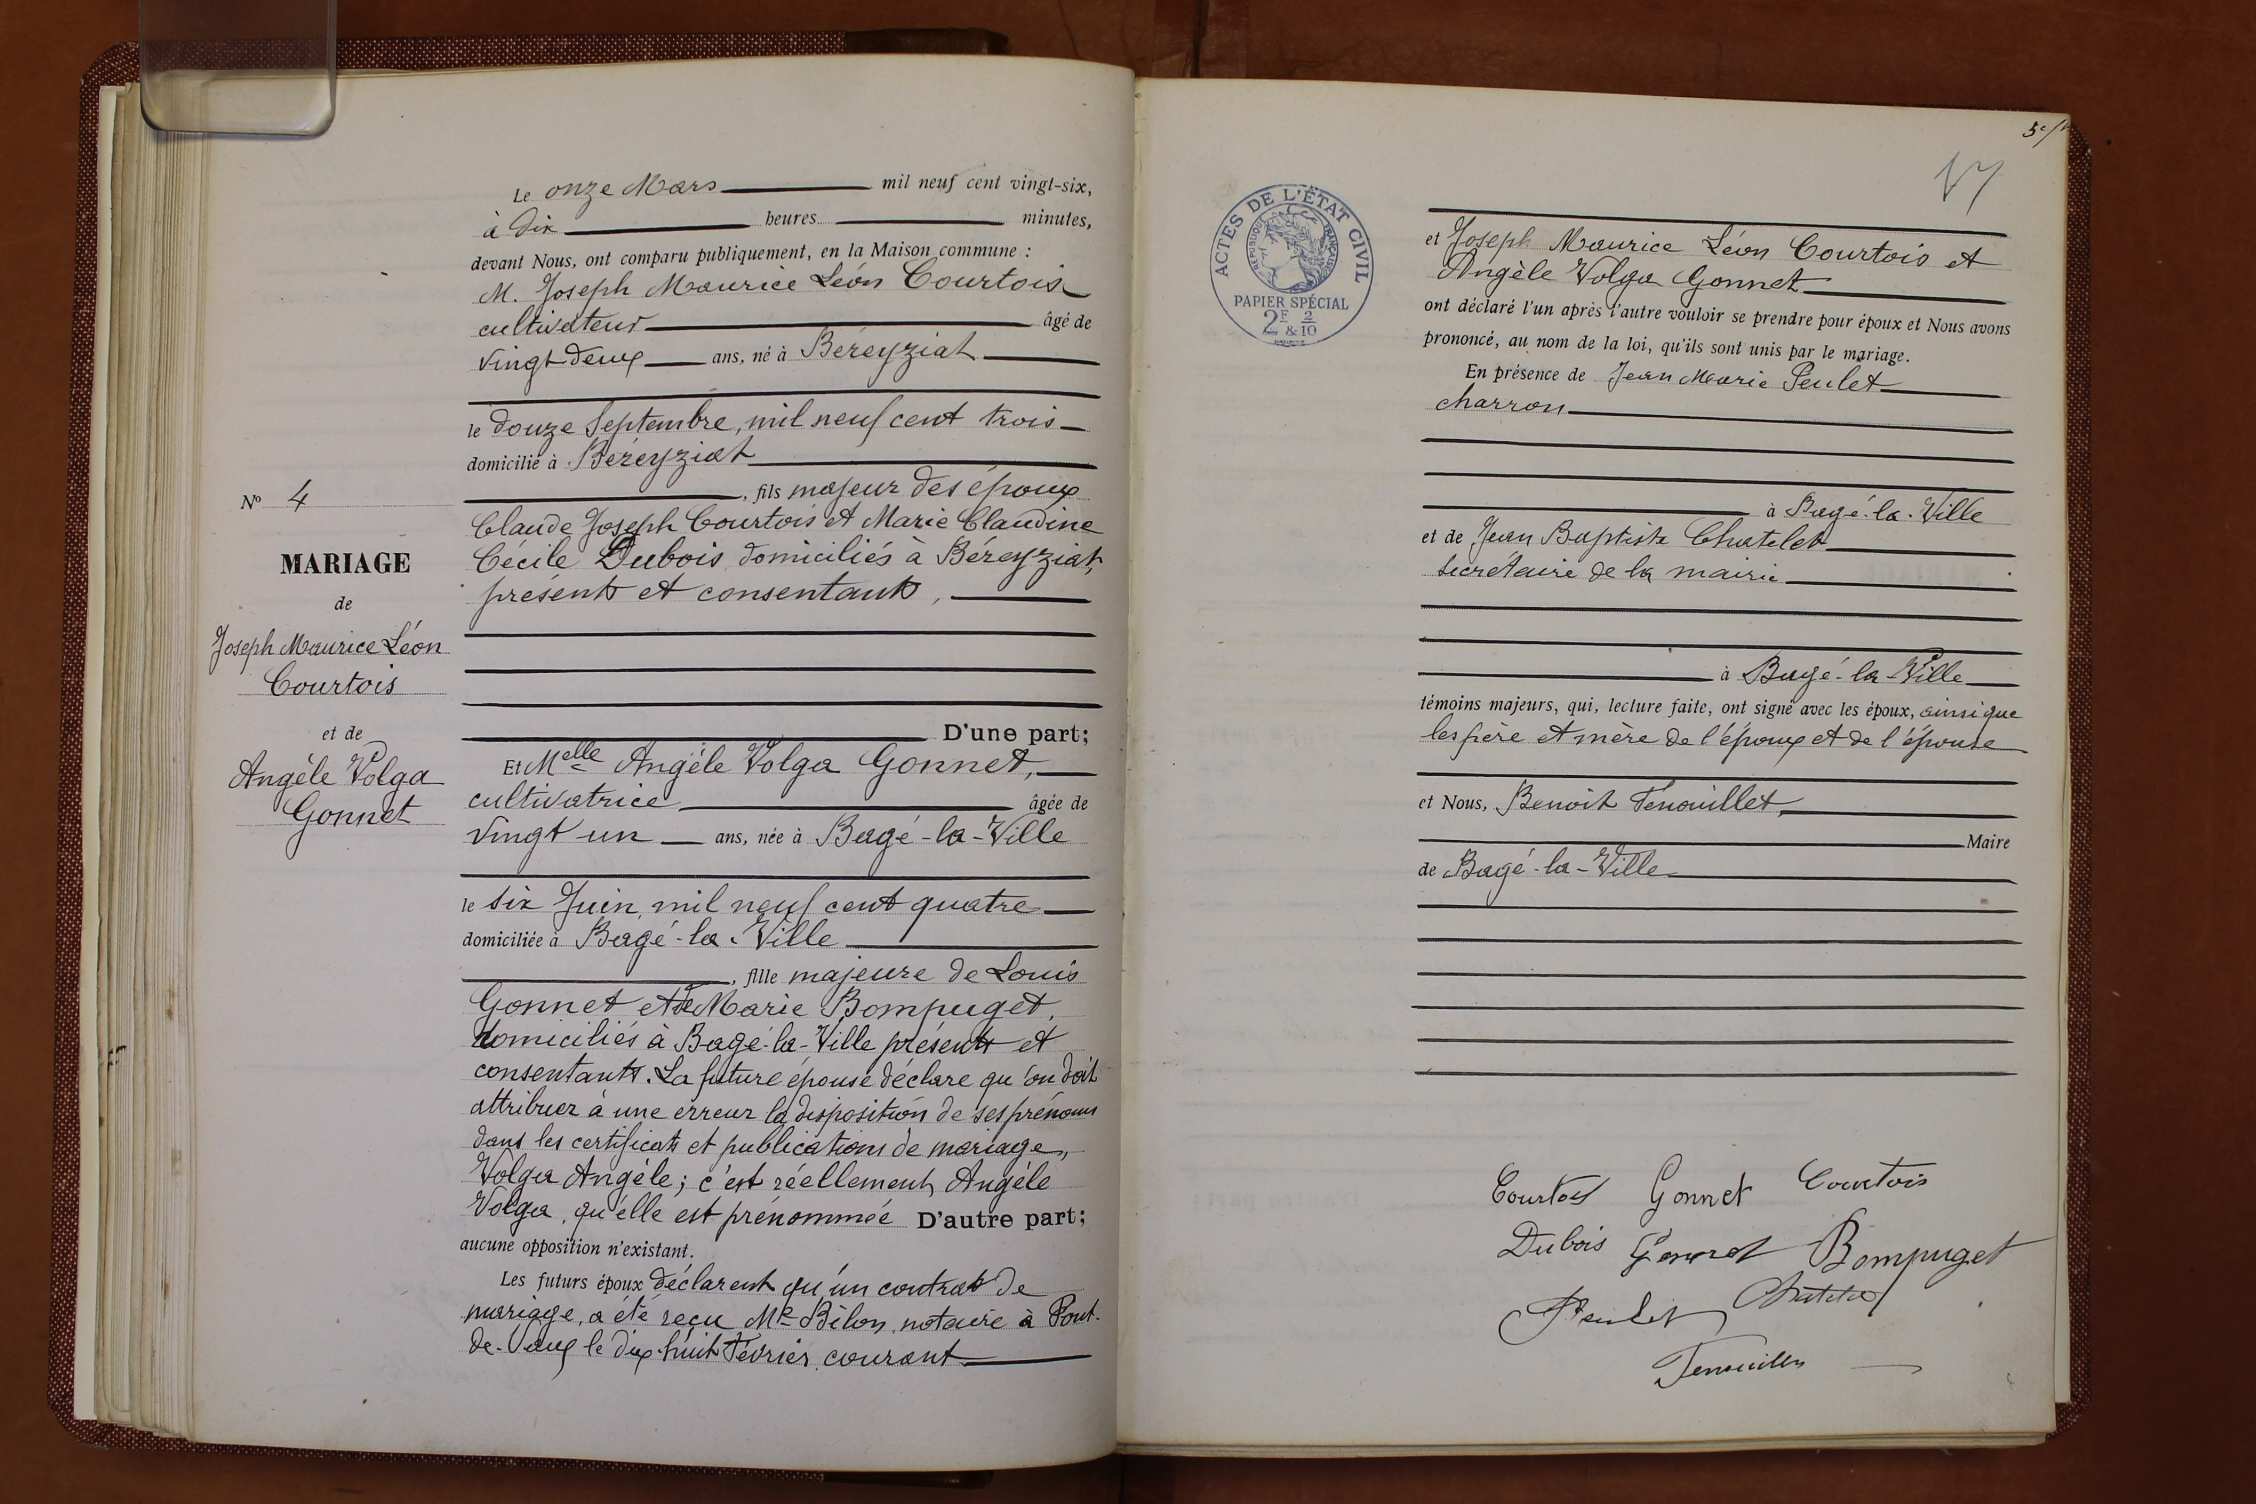 Le onze Mars mil neuf cent vingt-six,
à dix heures minutes,
devant Nous, ont comparu publiquement, en la Maison commune :
M. Joseph Maurice Léon Courtois
cultivateur âgé de
vingt deux ans, né à Béreyziat
le douze Septembre, mil neuf cent trois
domicilié à Béreyziat
, fils majeur des époux
Claude Joseph Courtois et Marie Claudine
Cécile Dubois domiciliés à Béreyziat,
présents et consentants,
D'une part;
Et Melle Angèle Volga Gonnet,
cultivatrice âgée de
vingt un ans, née à Bagé-la-Ville
le six Juin, mil neuf cent quatre
domiciliée à Bagé-la-Ville
, fille majeure de Louis
Gonnet et de Marie Bompuget,
domiciliés à Bagé-la-Ville présents et
consentants. La future épouse déclare qu'on doit
attribuer à une erreur la disposition de ses prénoms
dans les certificats et publications de mariage,
Volga Angèle; c'est réellement Angèle
Volga, qu'elle est prénommée D'autre part;
aucune opposition n'existant.
Les futurs époux déclarent qu'un contrat de
mariage, a été reçu Me Bélon, notaire à Pont-
de-Vaux le dix-huit Février courant
No 4
MARIAGE
de
Joseph Maurice Léon
Courtois
et de
Angèle Volga
Gonnet
17
ACTES DE L'ÉTAT CIVIL
RÉPUBLIQUE FRANÇAISE
PAPIER SPÉCIAL
2F & 2/10
et Joseph Maurice Léon Courtois et
Angèle Volga Gonnet
ont déclaré l'un après l'autre vouloir se prendre pour époux et Nous avons
prononcé, au nom de la loi, qu'ils sont unis par le mariage.
En présence de Jean Marie Peulet
charron
à Bagé-la-Ville
et de Jean Baptiste Chatelet
secrétaire de la mairie
à Bagé-la-Ville
témoins majeurs, qui, lecture faite, ont signé avec les époux, ainsi que
les père et mère de l'époux et de l'épouse
et Nous, Benoit Fenouillet,
Maire
de Bagé-la-Ville
Courtois Gonnet Courtois
Dubois Gonnet Bompuget
Peulet Chatelet
Fenouillet